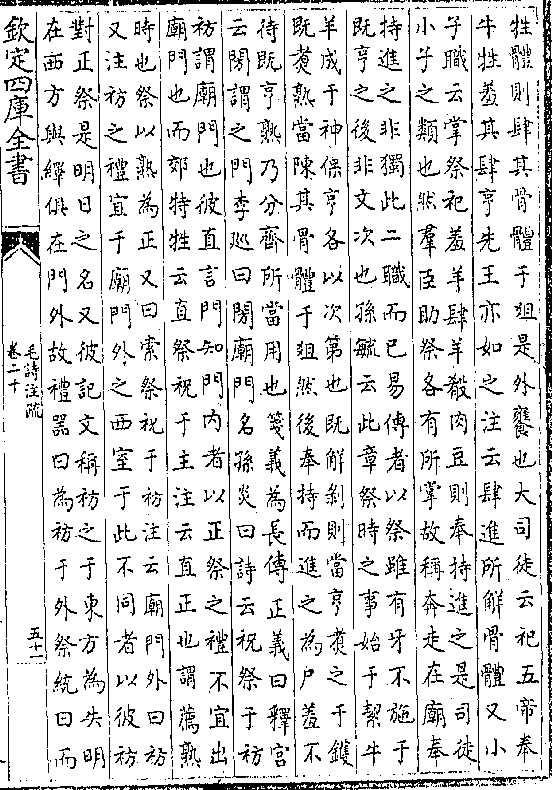 牲體則肆其骨體于俎是外饔也大司徒云祀五帝奉
牛牲羞其肆亨先王亦如之注云肆進所解骨體又小
子職云掌祭祀羞羊肆羊殽肉豆則奉持進之是司徒
小子之類也然羣臣助祭各有所掌故稱奔走在廟奉
持進之非獨此二職而已易傳者以祭雖有牙不施于
既亨之後非文次也孫毓云此章祭時之事始于絜牛
羊成于神保亨各以次第也既解剝則當亨煑之于鑊
既煑熟當陳其骨體于俎然後奉持而進之為尸羞不
待既亨熟乃分齊所當用也箋義為長傳正義曰釋宫
云閍謂之門李廵曰閍廟門名孫炎曰詩云祝祭于祊
祊謂廟門也彼直言門知門內者以正祭之禮不宜出
廟門也而郊特牲云直祭祝于主注云直正也謂薦熟
時也祭以熟為正又曰索祭祝于祊注云廟門外曰祊
又注祊之禮宜于廟門外之西室于此不同者以彼祊
對正祭是明日之名又彼記文稱祊之于東方為失明
在西方與繹俱在門外故禮器曰為祊于外祭統曰而
欽定四庫全書
毛詩注疏
卷二十
五十一